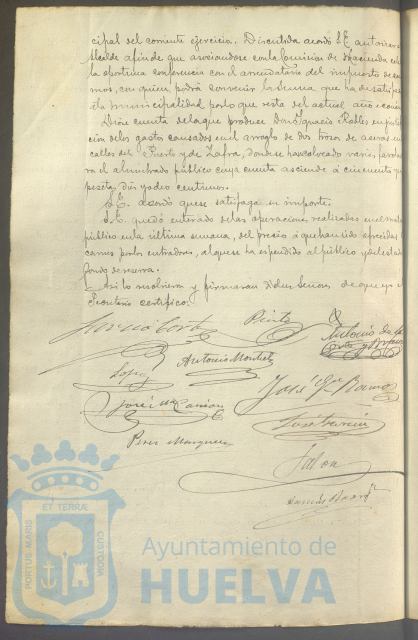 cipal del corriente ejercicio. Discutida acordó S.E. autorizar
Alcalde afin de que asociandose con la Comision de Hacienda
la oportuna conferencia con el arrendatario del impuesto de
mos, con quien podrá convenir la suma que ha de satisfacer
á la municipalidad por lo que resta del actual año
Dióse cuenta de la que produce Don Ignacio Robles
cion de los gastos causados en el arreglo de dos trozos de aceras en
calles del Puerto y de Zafra, donde se han colocado varios
ra el alumbrado público cuya cuenta asciende á cincuenta y
pesetas diez y ocho centimos.
S.E. acordó que se satisfaga su importe.
S.E. quedó enterado de las operaciones realizadas en el
público en la última semana, del precio á que han sido ofrecidas
carnes por los entradores, al que se ha expendido al público y del estado
fondo de reserva.
Así lo resolvieron y firmaron dichos Señores de que yo el
Secretario certifico.
Garcia Cortes
Pinto
Antonio de
Lopez
Antonio Montiel
José Gª Ramos
José Mª
José Garcia
Perez Marquez
Jalon
PORTUS MARIS
ET TERRÆ
CUSTODIA
Ayuntamiento de
HUELVA